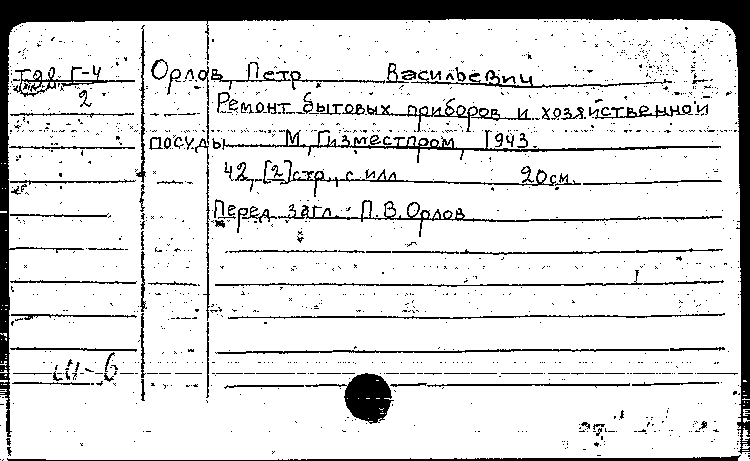 Г-4 Орлов, Петр Васильевич
2 Ремонт бытовых приборов и хозяйственной
посуды М., Гизместпром, 1943.
42, [2] стр., с илл. 20 см.
Перед загл.: П.В. Орлов
Ш-6